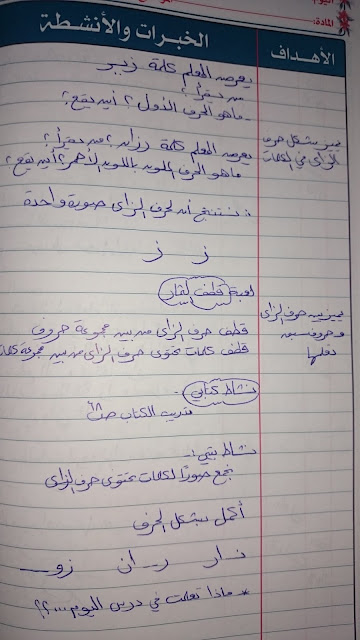 اليوم
المادة:
الأهداف
الخبرات والأنشطة
يعرض المعلم كلمة زبير
من يقرأ؟
- ما هو الحرف الأول؟ أين يقع؟
يميز شكل حرف
الزاي في الكلمات
يعرض المعلم كلمة رزان؟ من يقرأ؟
ما هو الحرف الملون باللون الأحمر؟ أين يقع؟
نستنتج أن لحرف الزاي صورة واحدة
ز ز
لعبة قطف الثمار
يميز بين حرف الزاي
وحروف سبق
تعلمها
قطف حرف الزاي من بين مجموعة حروف
قطف كلمات تحتوي حرف الزاي من بين مجموعة كلمات
نشاط كتابي -
تدريب الكتاب ص ٦٨
نشاط بيتي :-
نجمع صوراً لكلمات تحتوي حرف الزاي
أكمل بشكل الحرف
ـار ر ـان زو ـ
* ماذا تعلمت في درس اليوم ....؟؟